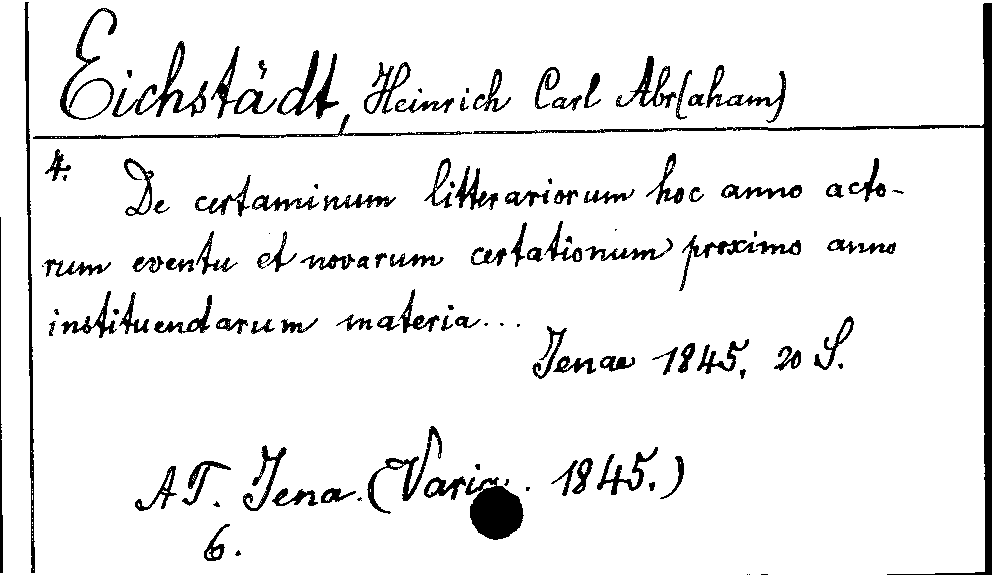 Eichstädt, Heinrich Carl Abr(aham)
4.
De certaminum litterariorum hoc anno acto-
rum eventu et novarum certationum proximo anno
instituendarum materia...
Jenae 1845. 20 S.
AT. Jena. (Varia. 1845.)
6.